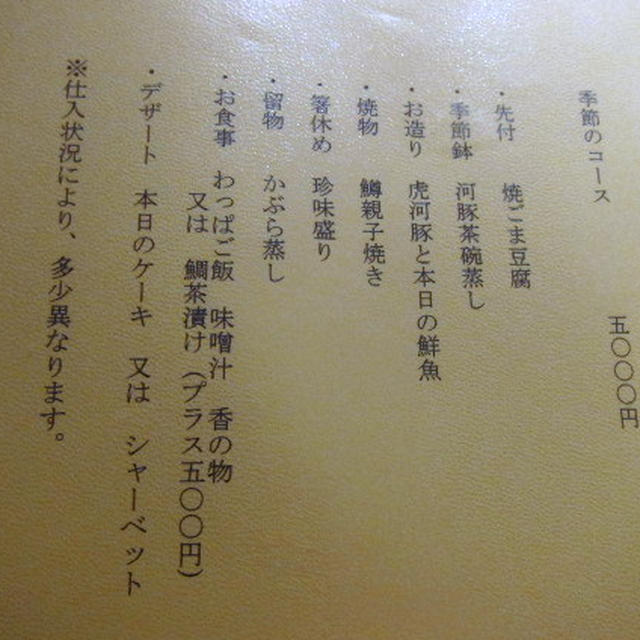 季節のコース 五〇〇〇円
・先付 焼ごま豆腐
・季節鉢 河豚茶碗蒸し
・お造り 虎河豚と本日の鮮魚
・焼物 鱒親子焼き
・箸休め 珍味盛り
・留物 かぶら蒸し
・お食事 わっぱご飯 味噌汁 香の物
又は 鯛茶漬け（プラス五〇〇円）
・デザート 本日のケーキ 又は シャーベット
※仕入状況により、多少異なります。